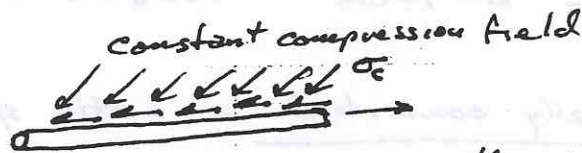 constant compression field
σc